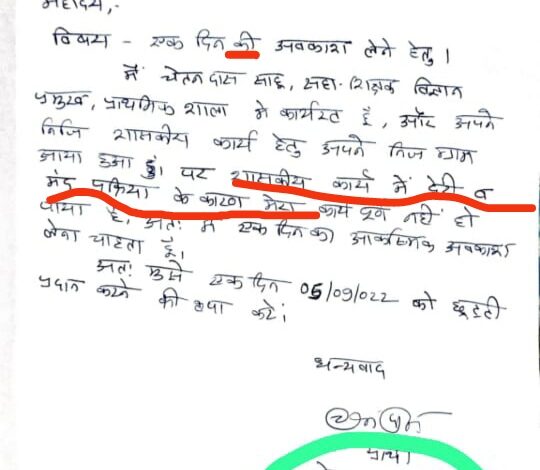 महोदय,-
विषय - एक दिन की अवकाश लेने हेतु।
मैं चेतन दास साहू, सहा. शिक्षक विज्ञान
प्रमुख, प्राथमिक शाला में कार्यरत हूँ, और अपने
निजि शासकीय कार्य हेतु अपने निज ग्राम
आया हुआ हूं। पर शासकीय कार्य में देरी व
मंद प्रक्रिया के कारण मेरा कार्य पूर्ण नहीं हो
पाया है, अतः मैं एक दिन का आकस्मिक अवकाश
लेना चाहता हूँ।
अतः मुझे एक दिन 05/09/022 को छुट्टी
प्रदान करने की कृपा करें।
धन्यवाद
प्रार्थी